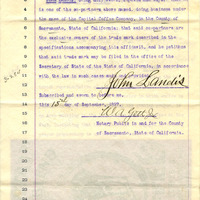 is one of the co-partners above named, doing business under
the name of the Capital Coffee Company, in the County of
Sacramento, State of California, that said co-partners are
the exclusive owners of the trade mark described in the
specifications accompanying this affidavit, and he petitions
that said trade mark may be filed in the office of the
Secretary of State of the State of California, in accordance
with the law in such cases made and provided.
John Landis
Subscribed and sworn to before me,
this 15th day of September, 1897.
Notary Public in and for the County
of Sacramento, State of California.
4
5
6
7
8
9
10
11
12
13
14
15
16
17